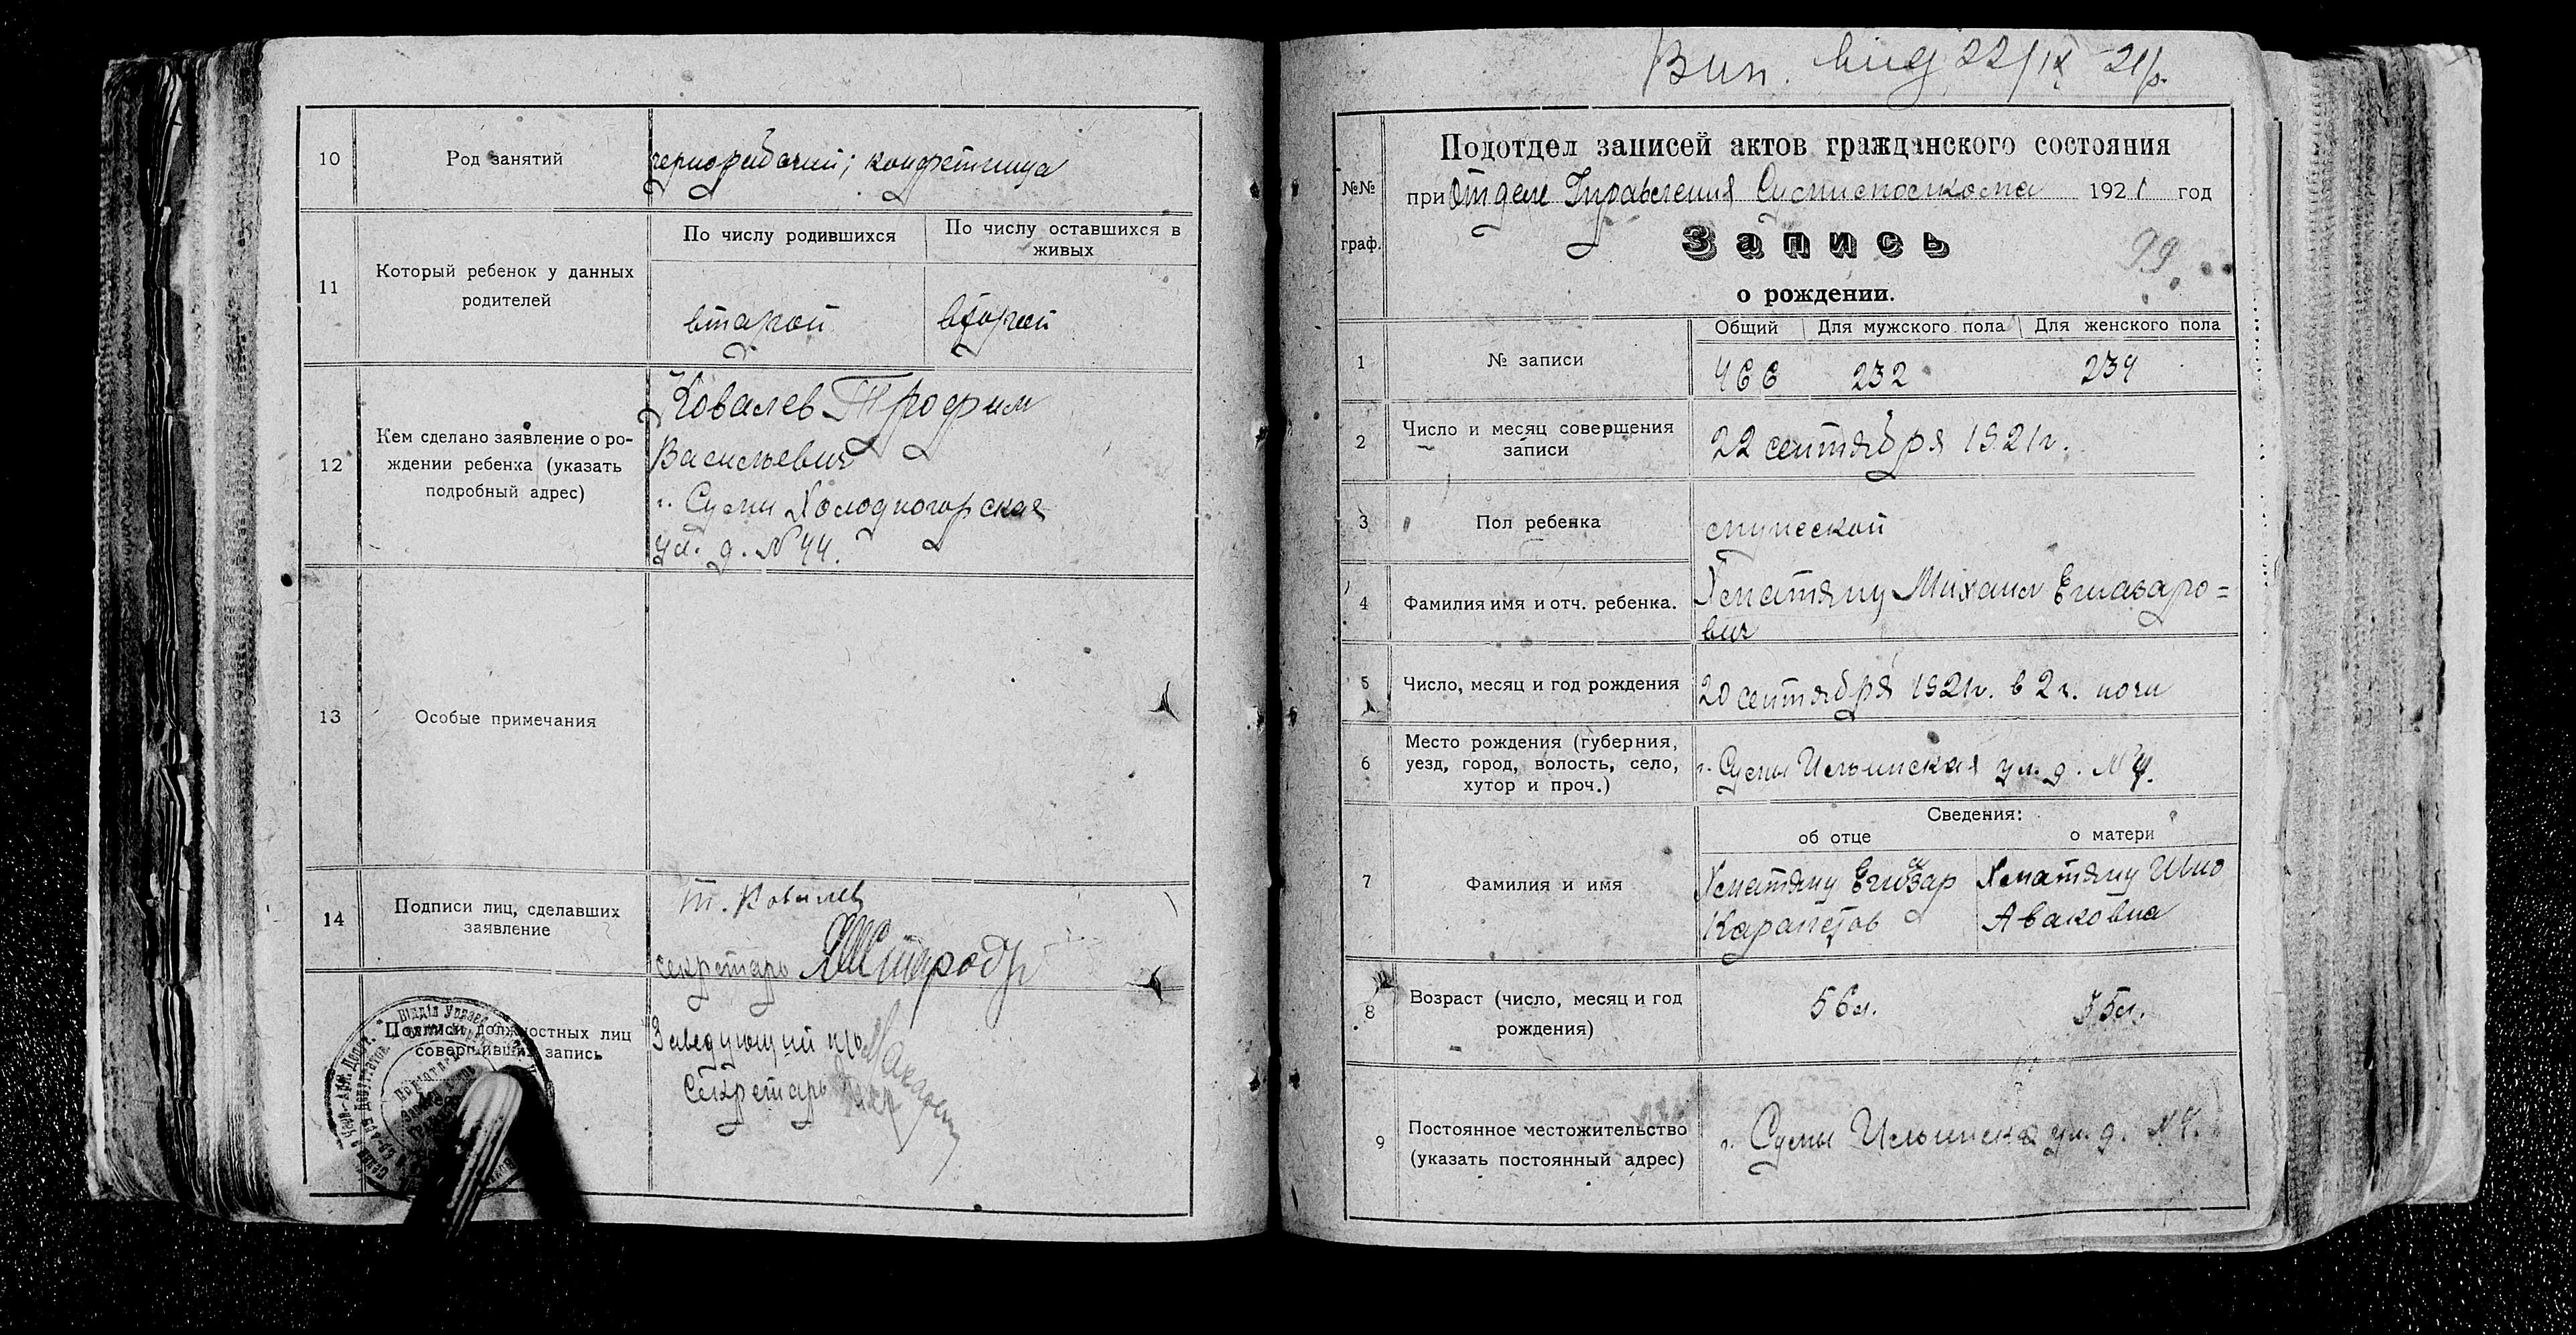 10
Род занятий
чернорабочий; конфетница
11
Который ребенок у данных
родителей
По числу родившихся
По числу оставшихся в
живых
второй
второй
12
Кем сделано заявление о ро-
ждении ребенка (указать
подробный адрес)
Ковалев Трофим
Васильевич
г. Сумы Холодногорская
ул. д. N 44.
13
Особые примечания
14
Подписи лиц, сделавших
заявление
Т. Ковалев
секретарь
Подписи должностных лиц
совершивших запись
Заведующий
Секретарь
Вип. вид 22/IX 21р.
№№
граф.
Подотдел записей актов гражданского состояния
при Отделе Управления Сумисполкома 1921 год
Запись
99
о рождении.
1
№ записи
Общий
Для мужского пола
Для женского пола
466
232
234
2
Число и месяц совершения
записи
22 сентября 1921г.
3
Пол ребенка
мужеской
4
Фамилия имя и отч. ребенка.
Михаил Егиазаро=
вич
5
Число, месяц и год рождения
20 сентября 1921г. в 2 ч. ночи
6
Место рождения (губерния,
уезд, город, волость, село,
хутор и проч.)
г. Сумы Ильинская ул. д. N
7
Фамилия и имя
Сведения:
об отце
о матери
Егиазар
Карапетов
Аваковна
8
Возраст (число, месяц и год
рождения)
56 л.
9
Постоянное местожительство
(указать постоянный адрес)
г. Сумы Ильинская ул. д. N